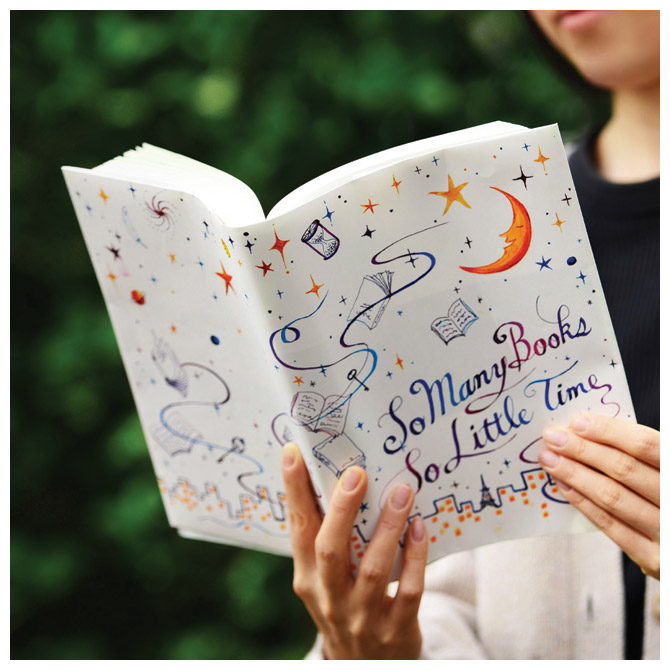 So Many Books
So Little Time